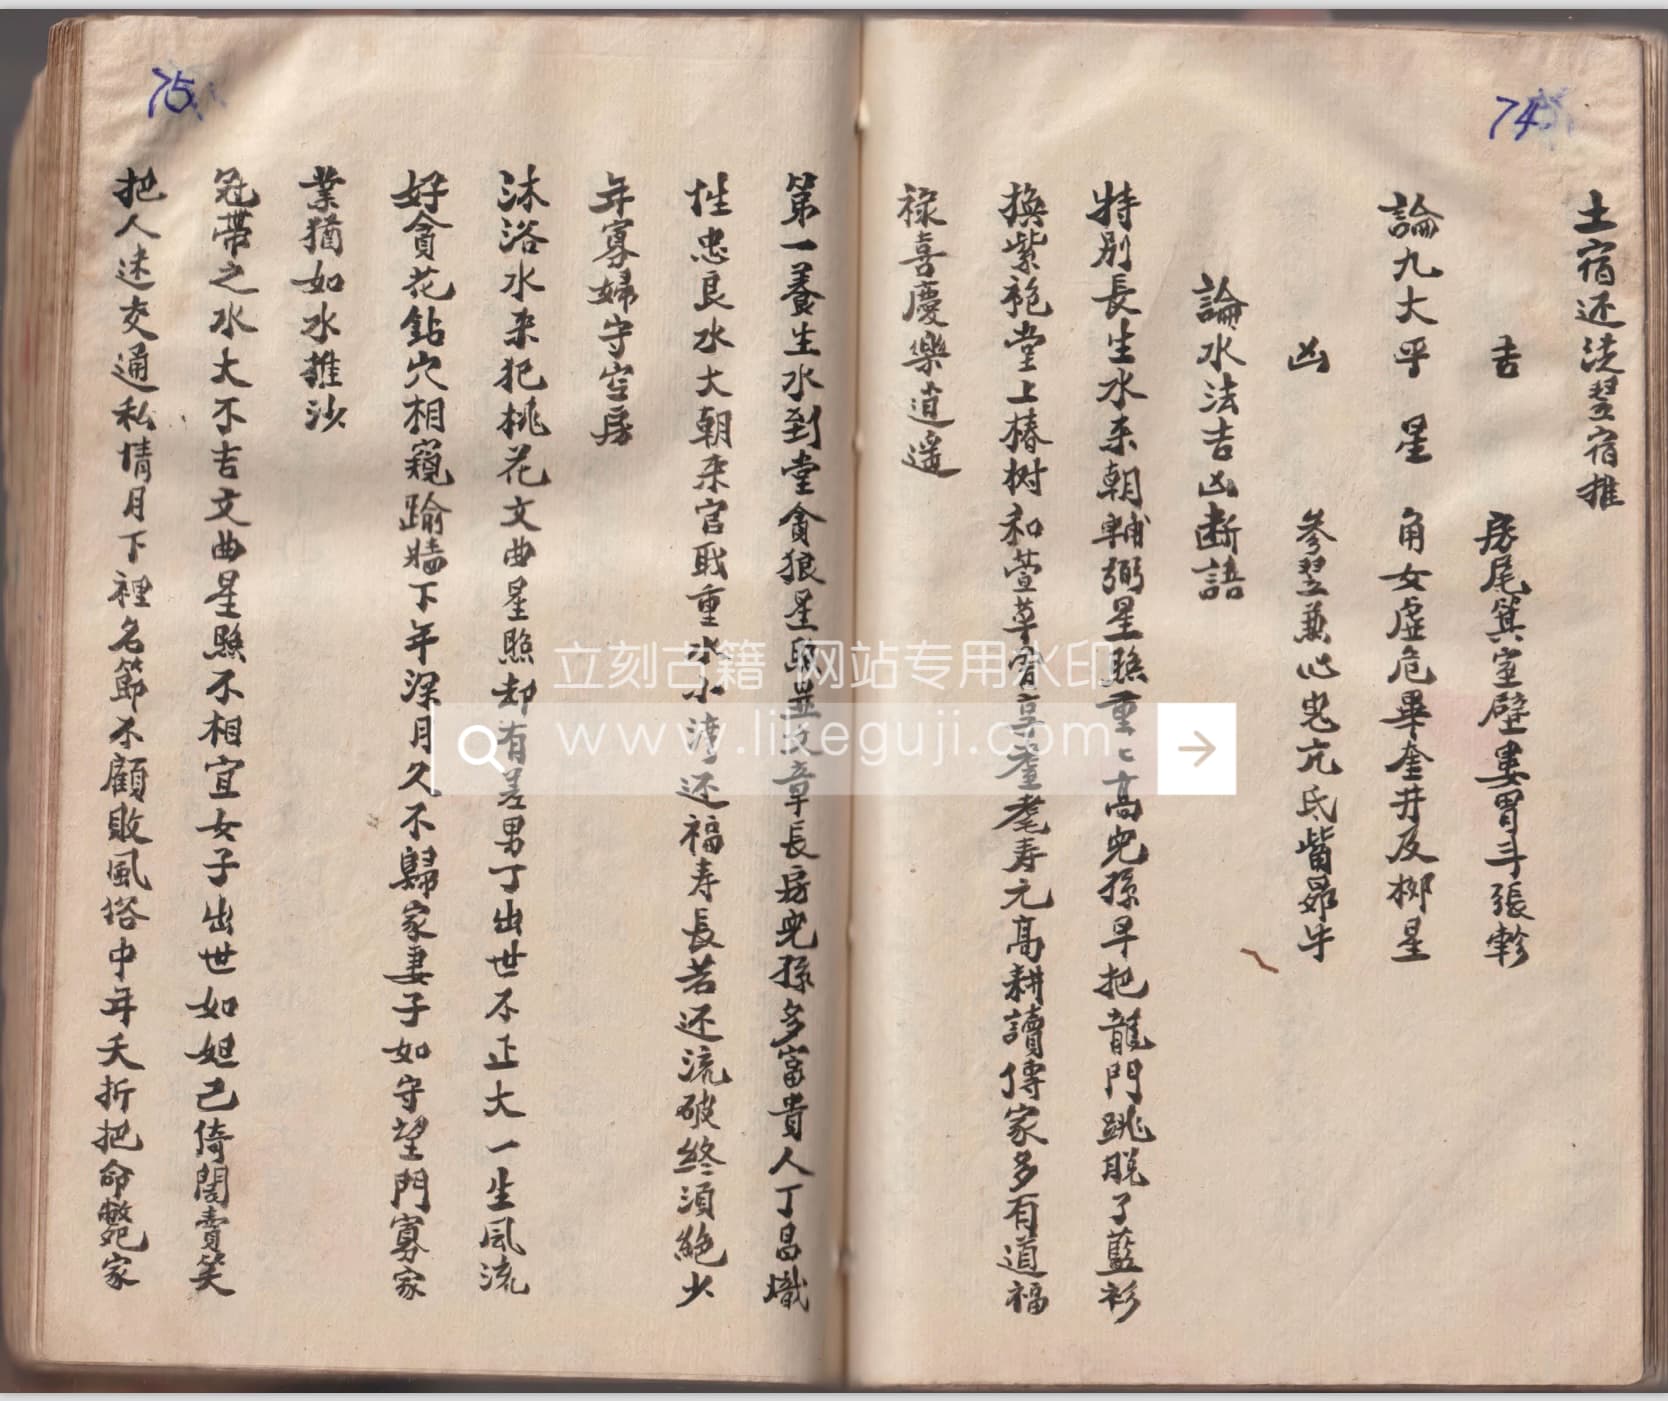 74
土宿还従翌宿推
吉 房尾箕室壁婁胃斗張軫
論九大平 星 角女虛危畢奎井及栁星
凶 參翌兼心鬼亢氐觜昴牛
論水法吉凶断語
特別長生水来朝輔弼星照重〻高兒孫早把龍門跳脱了藍衫
換紫袍堂上椿树和萱草享耋耄寿元高耕讀傳家多有道福
禄喜慶樂逍遥
75
第一養生水到堂貪狼星照並文章長房兒孫多富貴人丁昌熾
性忠良水大朝来官職重水小湾还福寿長若还流破終須絶少
年寡婦守空房
沐浴水来犯桃花文曲星照却有差男丁出世不正大一生風流
好貪花鉆穴相窺踰墙下年深月久不歸家妻子如守望門寡家
業猶如水推沙
冠帶之水大不吉文曲星照不相宜女子出世如妲己倚閣賣笑
把人迷交通私情月下裡名節不顧敗風俗中年夭折把命斃家
立刻古籍 网站专用水印
www.likeguji.com